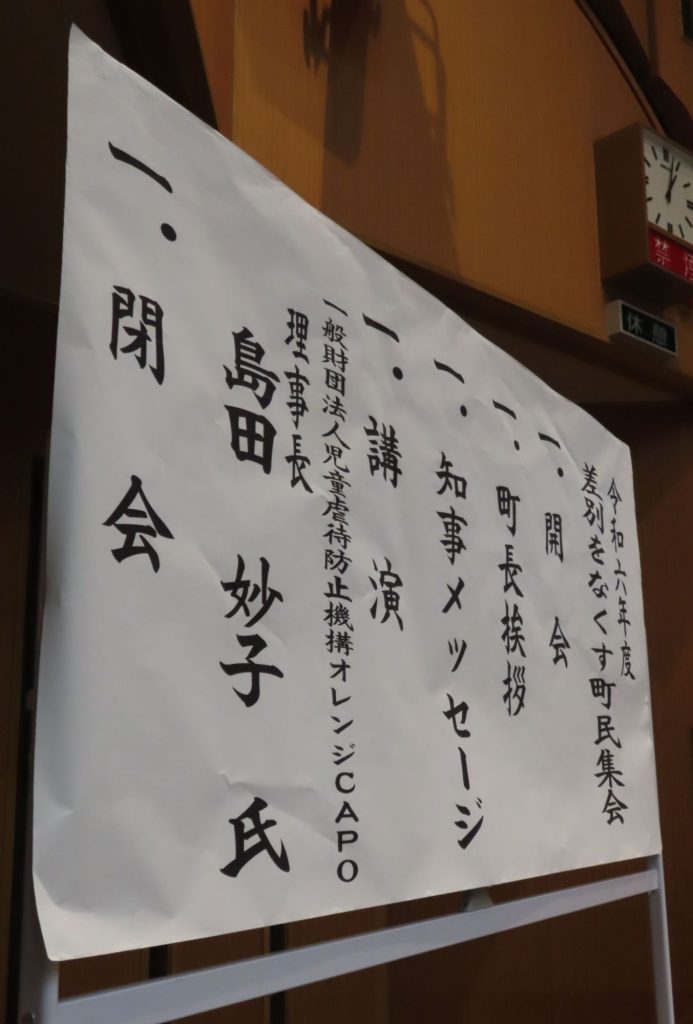 令和六年度
差別をなくす町民集会
一．開会
一．町長挨拶
一．知事メッセージ
一．講演
一般財団法人児童虐待防止機構オレンジCAPO
理事長
島田 妙子 氏
一．閉会
禁煙
休憩